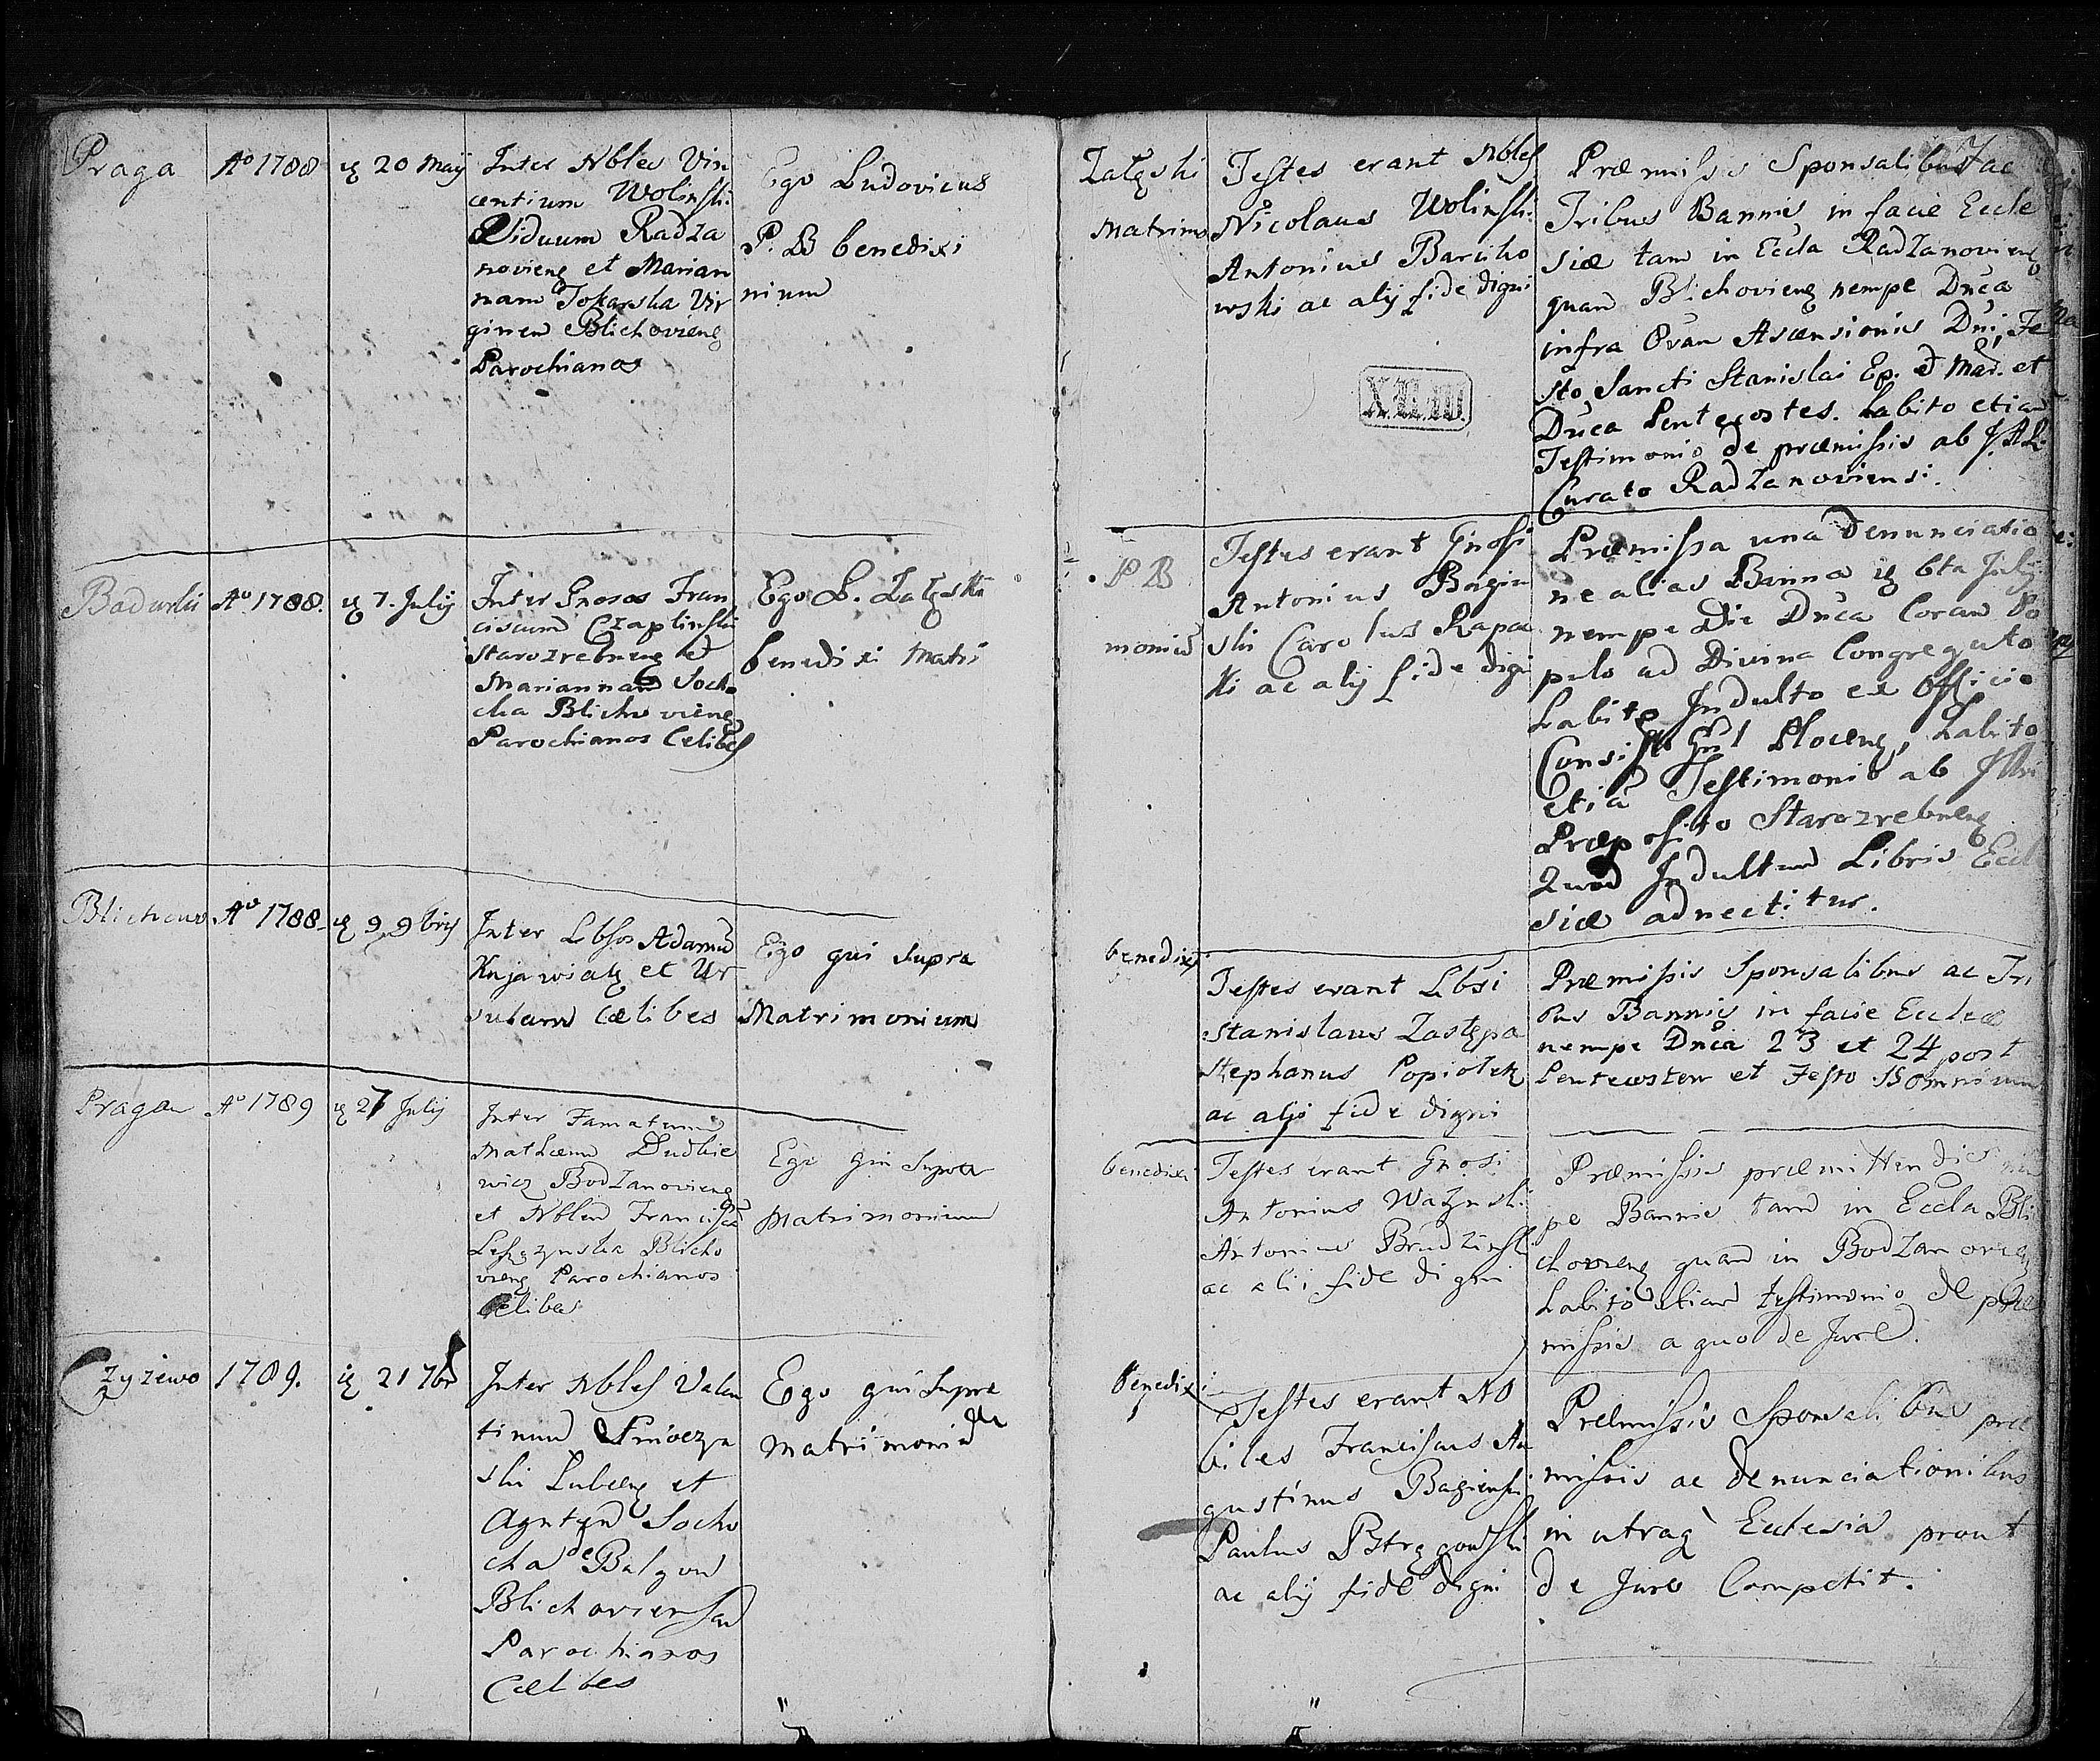 Praga
Ao 1788
20 Maij
Inter Nbles Vin
centium Wolinski
Viduum Radza
novieng et Marian
nam Tokarska Vir
ginem Blichovieng
Parochianos
Ego Ludovicus
P. B benedixi
nium
Załęski
Matrimo
Testes erant Nbles
Nicolaus Wolinski
Antonius Barciko
wski ac alij fide digni
Præmissis Sponsalibus ac
Tribus Bannis in facie Eccle
siæ tam in Eccla Radzanovieng
quam Blichovieng nempe Dnca
infra Ovam Ascensionis Dni, Fe
sto Sancti Stanislai Ep. et Mar. et
Dnca Pentecostes. habito etiam
Testimonio de præmissis ab
Curato Radzanoviensi.
X.II.10.
Ao 1788.
7. Julij
Inter Gnosos Fran
ciscum Czaplinski
Starozrebneng et
Mariannam Socho
cka Blichovieng
Parochianos Celibes
Ego L. Załęski
benedixi Matri
P B
monium
Testes erant Gnosi
Antonius Bagin
ski Carolus Rapa
ki ac alij fide digi
Præmissa una Denunciatio
ne alias Banna 6ta Julij
nempe Die Dnca Coram Po
pulo ad Divina Congregato
habito Indulto ex Officio
Consist Gnl Płoceng, habito
etia Testimonio ab
Præposito Starozrebneng
Quod Indultum Libris Eccl
siæ adnectitur.
Blichowo
Ao 1788
9 9bris
Inter Lbsos Adamum
Kujawiak et Ur
sulam Cælibes
Ego qui supra
Matrimonium
benedixi
Testes erant Lbsi
Stanislaus Zastępa
Stephanus Popiołek
ac alij fide digni
Præmissis Sponsalibus ac Tri
bus Bannis in facie Ecclesiæ
nempe Dnca 23 et 24 post
Pentecosten et Festo Omnium
Praga
Ao 1789
27 Julij
Inter Famatum
Mathæum Dudkie
wicz Bodzanovieng
et Nblem Francisca
Leszczynska Blicho
vieng Parochianos
Celibes
Ego qui Supra
Matrimonium
benedixi
Testes erant Gnosi
Antonius Ważynski
Antonius Brudzinski
ac alii fide digni
Præmissis præmittendis
pe Bannis tam in Eccla Bli
chovieng quam in Bodzanovieng
habito etiam testimonio de præ
missis a quo de Jure.
Zyzewo
1789.
21 7br
Inter Nbles Valen
tinum
ski Lubeng et
Agnetem Socho
cka de Balgow
Blichoviensem
Parochianos
Cælibes
Ego qui Supra
matrimoniu
benedixi
Testes erant No
biles Franciscus Au
gustinus Baginski
Paulus
ac alij fide digni
Præmissis Sponsalibus præ
missis ac denunciationibus
in utraq Ecclesia prout
de Jure Competit.